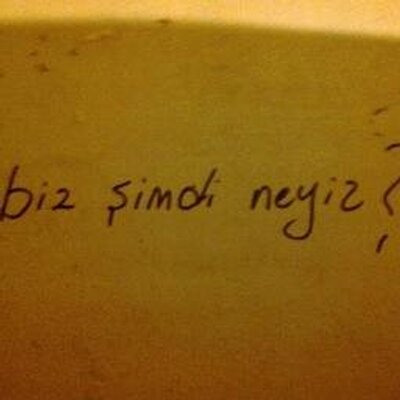 biz şimdi neyiz?